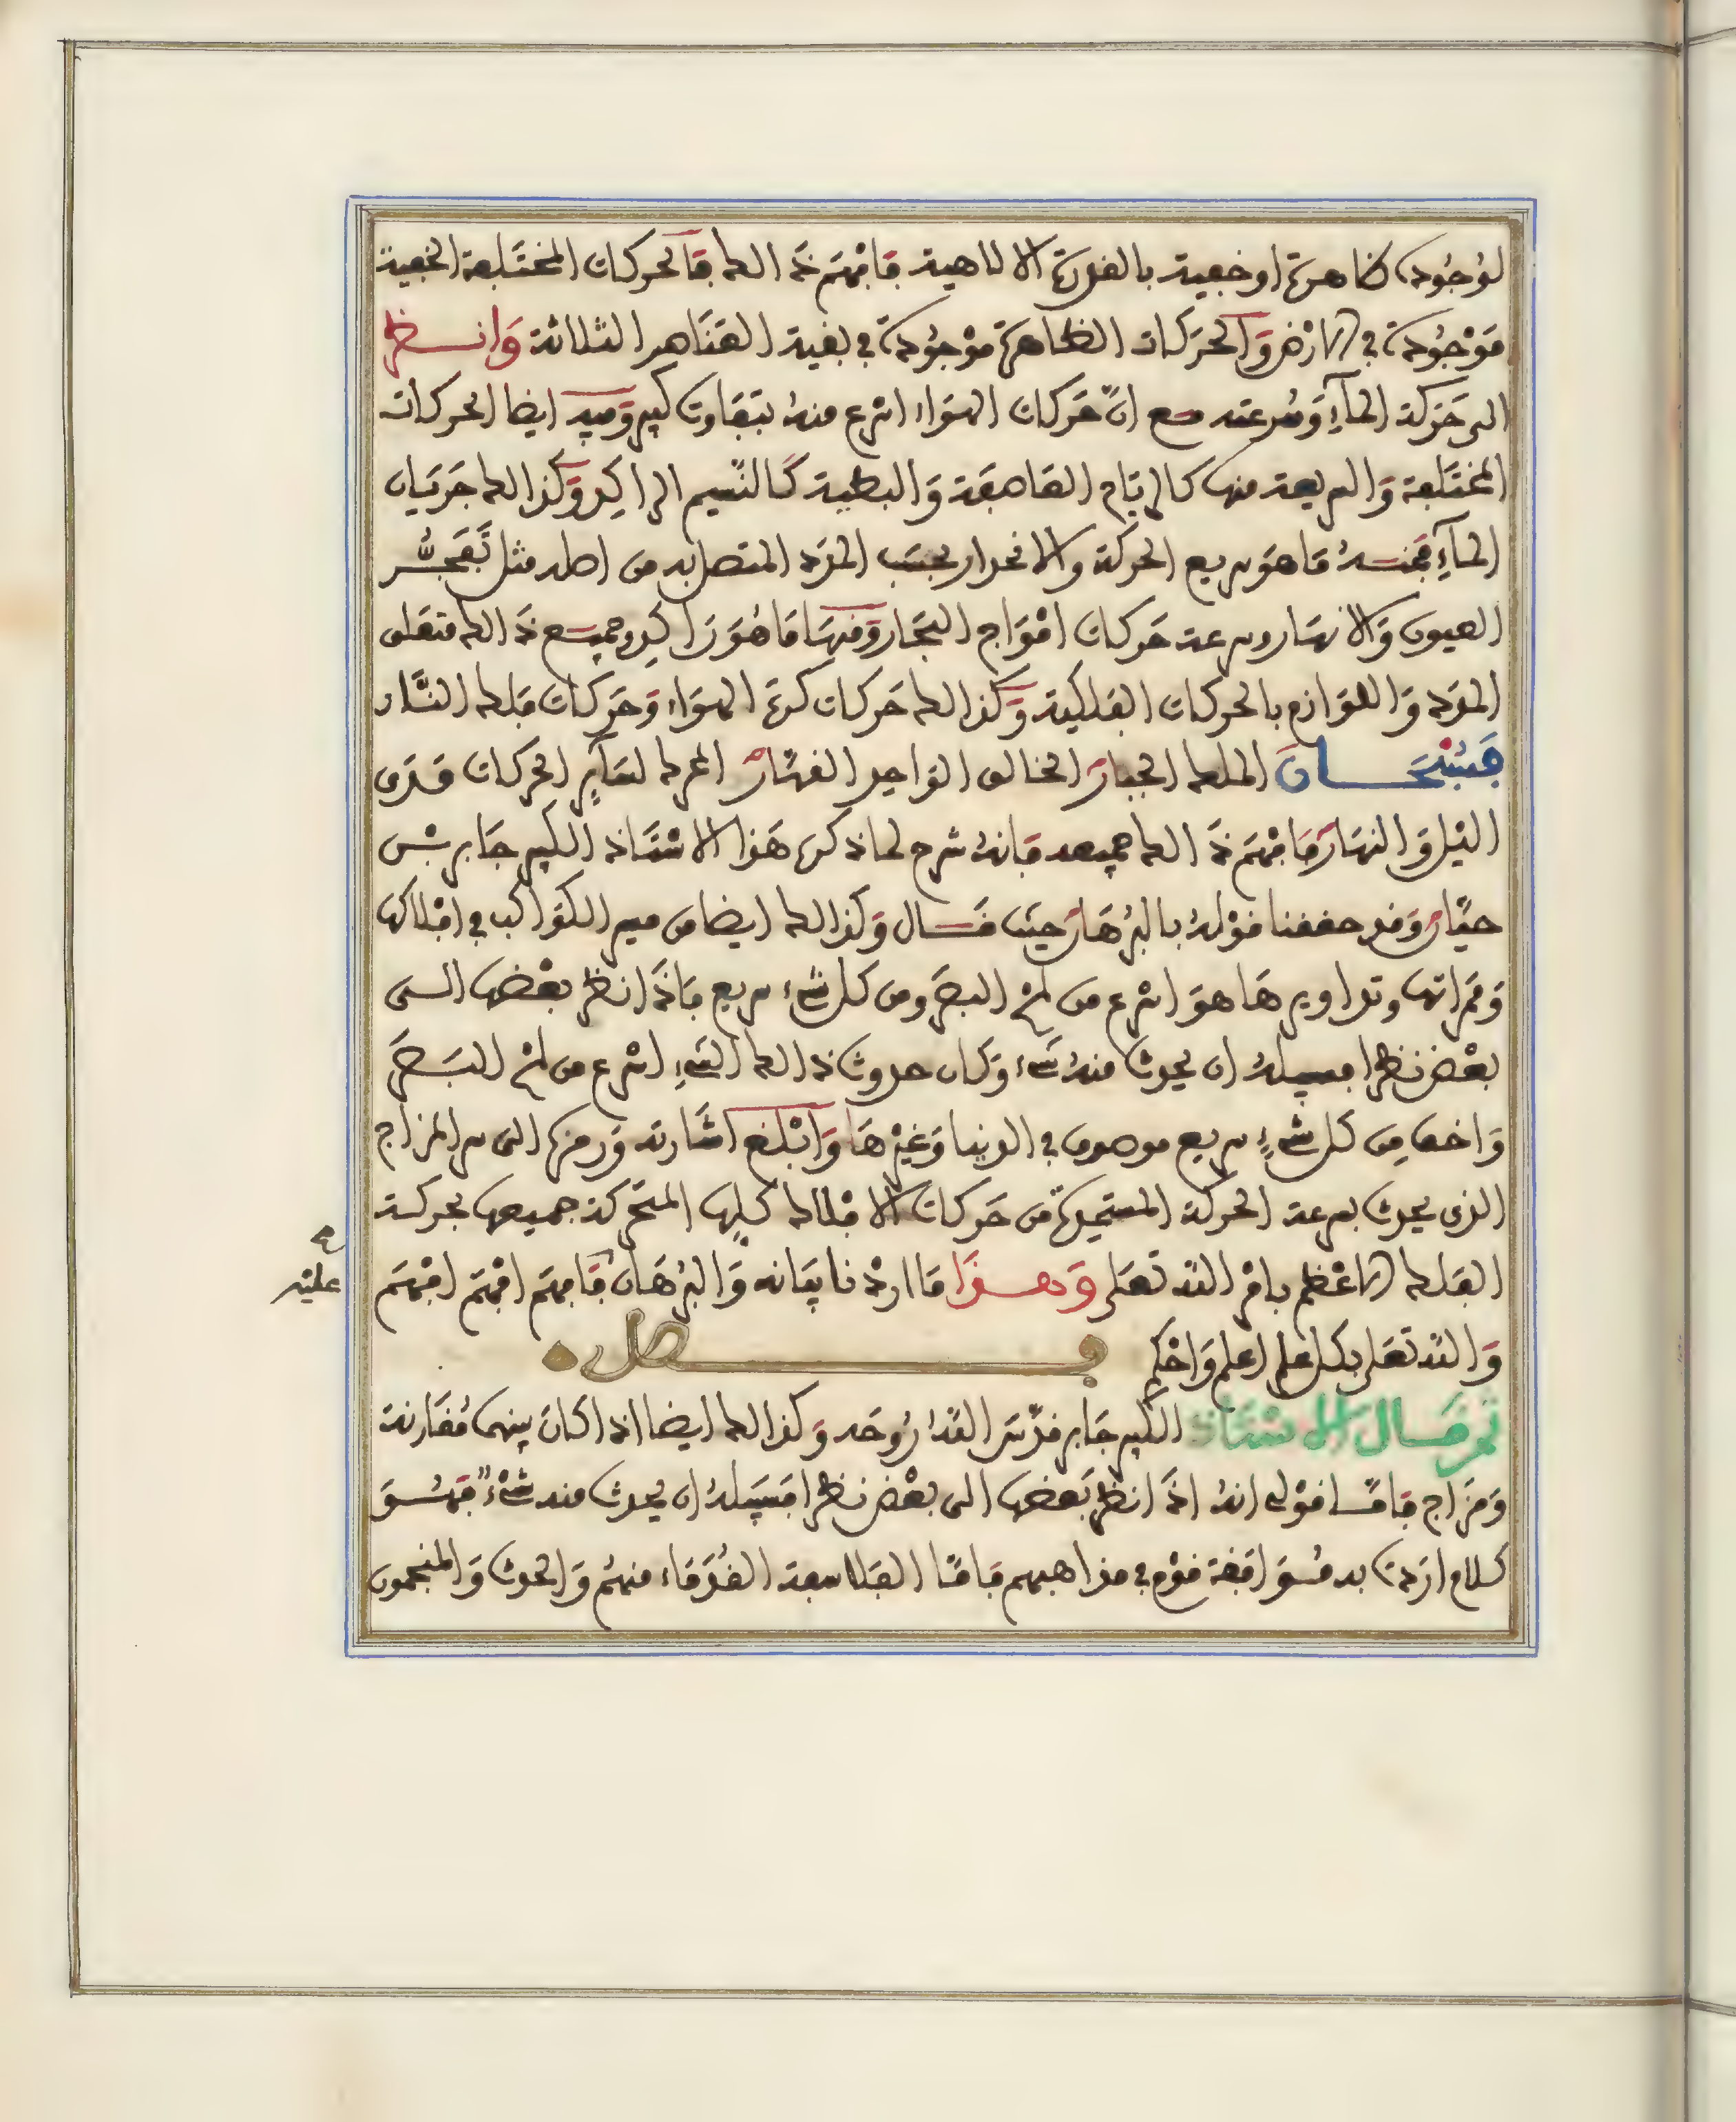 لوجوده ظاهرة او خفية بالقدرة الالاهية فافهم ذالك فالحركات المختلفة الخفية
موجودة في الارض والحركات الظاهرة موجودة في بقية العناصر الثلاثة وانظر
الى حركة المآء وسرعته مع ان حركات الهواء اسرع منه بتفاوت كبير وفيه ايضا الحركات
المختلفة والسريعة منها كالرياح العاصفة والبطية كالنسيم الراكد وكذالك جريان
المآء فمنه ما هو سريع الحركة والانحدار بحسب المدد المتصل به من اصله مثل تفجر
العيون والانهار وسرعة حركات امواج البحار ومنها ما هو راكد وجميع ذالك متعلق
المدد واللوازم بالحركات الفلكية وكذالك حركات كرة الهواء وحركات فلك النار
فسبحان الملك الجبار الخالق الواحد القهار المحرك لسآئر الحركات مدى
الليل والنهار فافهم ذالك جميعه فانه شرح لما ذكره هذا الاستاذ الكبير جابر بن
حيان وقد حققنا قوله بالبرهان حيث قال وكذالك ايضا من سير الكواكب في افلاكها
وممراتها وتداويرها هو اسرع من لمح البصر ومن كل شيء سريع فاذا نظر بعضها الى
بعض نظرا فسبيله ان يحدث منه شيء وكان حدوث ذالك الشيء اسرع من لمح البصر
واخف من كل شيء سريع موصوف في الدنيا وغيرها وابلغ اشارته ورمزه الى سر المزاج
الذي يحدث بسرعة الحركة المستديرة من حركات الافلاك كلها المتحركة جميعها بحركة
الفلك الاعظم بامر الله تعلى وهذا ما اردنا بيانه والبرهان فافهم افهم افهم
عليه
والله تعلى بكل علم اعلم واحكم فصل
ثم قال الاستاذ الكبير جابر قدس الله روحه وكذالك ايضا اذا كان بينهما مقارنة
ومزاج فاما قولي انه اذا نظر بعضها الى بعض نظرا فسبيله ان يحدث منه شيء فهو
كلام اردت به موافقة قوم في مذاهبهم فاما الفلاسفة القدماء منهم والحدث والمنجمون